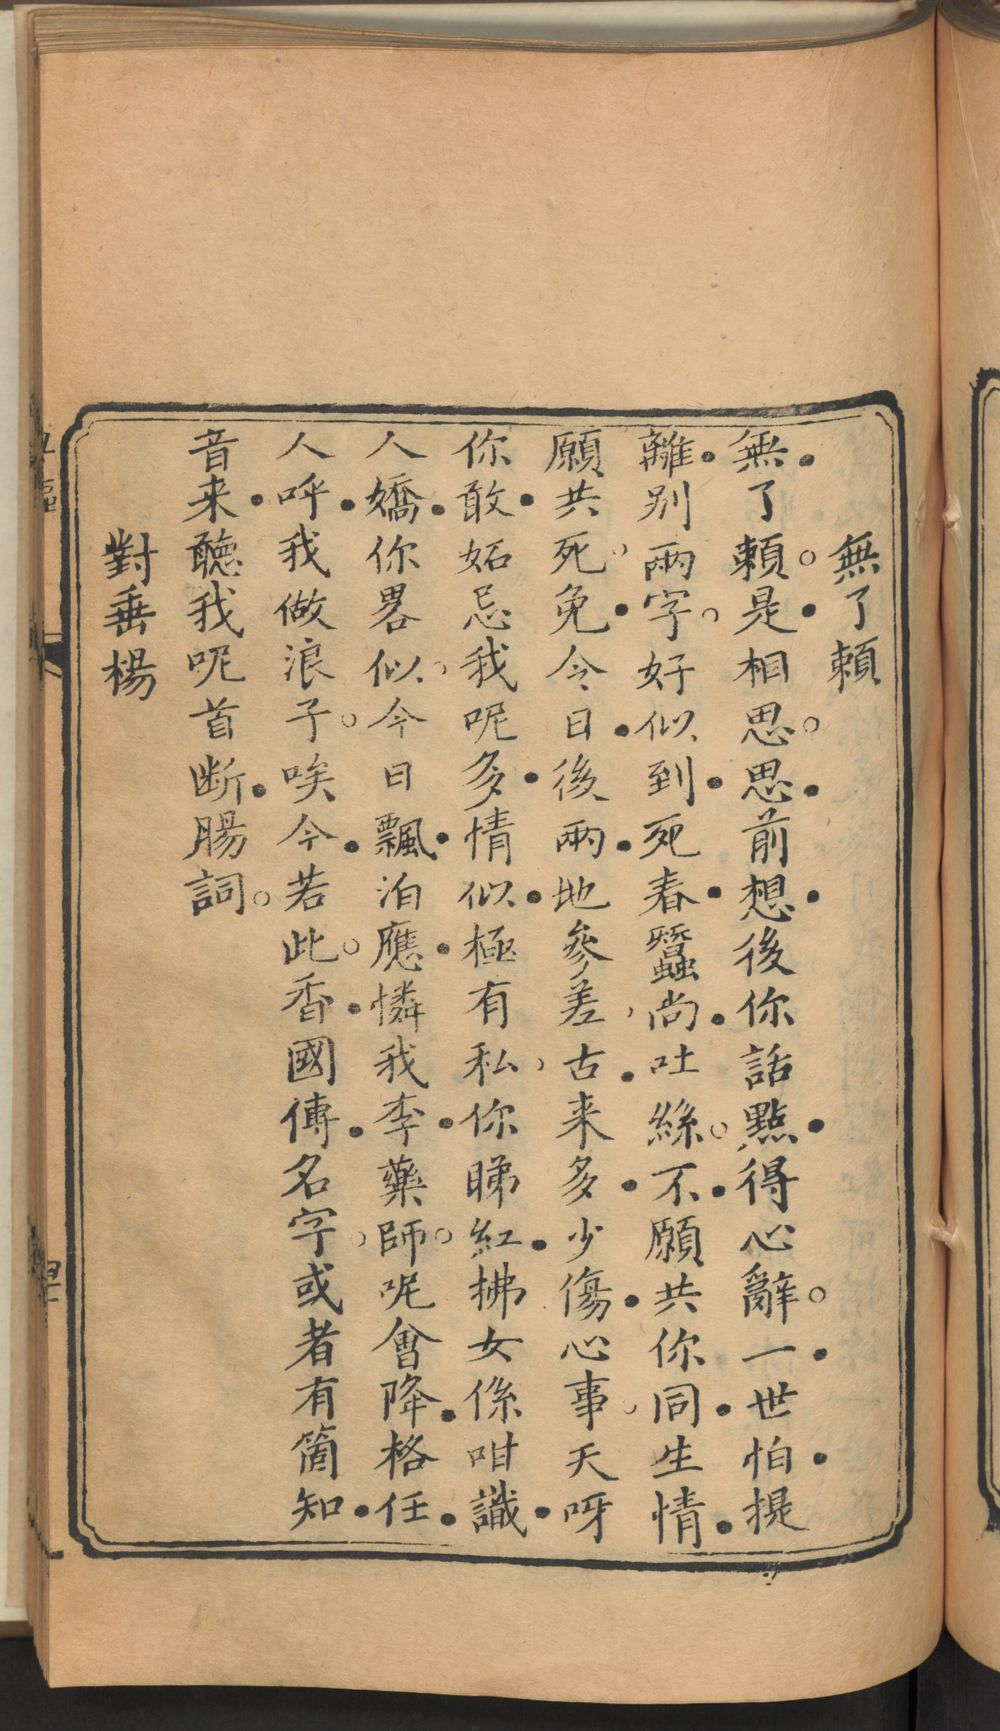 無了賴
無了賴是相思思前想後你話點得心辭一世怕提
離別兩字好似到死春蠶尚吐絲不願共你同生情
願共死免今日後兩地參差古来多少傷心事天呀
你敢妬忌我呢多情似極有私你睇紅拂女係咁識
人嬌你畧似今日飄泊應憐我李藥師呢會降格任
人呼我做浪子唉今若此香國傳名字或者有箇知
音来聽我呢首断腸詞
對垂楊